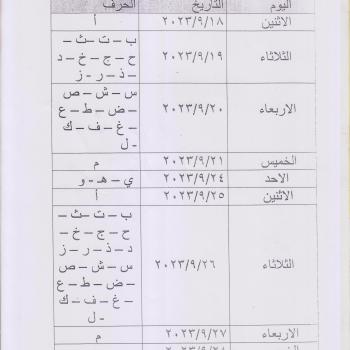 اليوم التاريخ الحرف
الاثنين ٢٠٢٣/٩/١٨ أ
الثلاثاء ٢٠٢٣/٩/١٩ ب – ت – ث –
ح – ج – خ – د
– ذ – ر – ز
الاربعاء ٢٠٢٣/٩/٢٠ س – ش – ص
– ض – ط – ع
– غ – ف – ك
– ل
الخميس ٢٠٢٣/٩/٢١ م
الاحد ٢٠٢٣/٩/٢٤ ي – هـ – و
الاثنين ٢٠٢٣/٩/٢٥ أ
الثلاثاء ٢٠٢٣/٩/٢٦ ب – ت – ث –
ح – ج – خ –
د – ذ – ر – ز
س – ش – ص
– ض – ط – ع
– غ – ف – ك
– ل
الاربعاء ٢٠٢٣/٩/٢٧ م